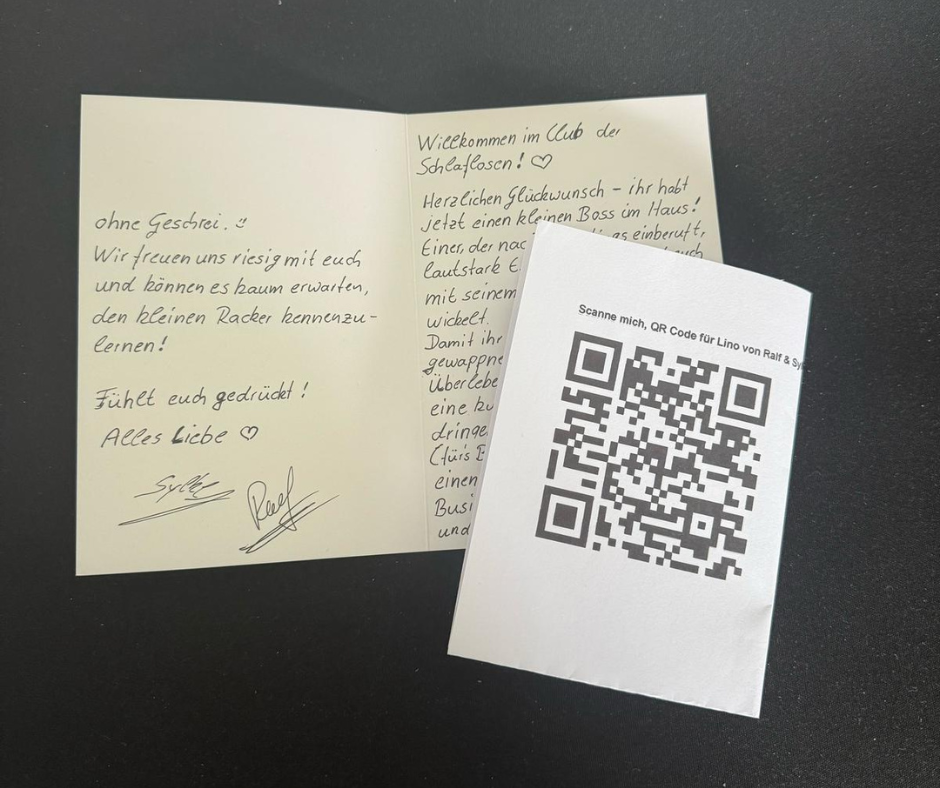 ohne Geschrei. :)
Wir freuen uns riesig mit euch
und können es kaum erwarten,
den kleinen Racker kennenzu-
lernen!
Fühlt euch gedrückt!
Alles Liebe ♡
Sylke
Ralf
Willkommen im Club der
Schlaflosen! ♡
Herzlichen Glückwunsch – ihr habt
jetzt einen kleinen Boss im Haus!
Einer, der einberuft,
lautstark
mit seinem
wickelt.
Damit ihr
eine
(für's
einen
und
Scanne mich, QR Code für Lino von Ralf &